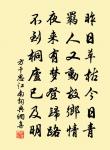 昨日草枯今日青
羈人又動故鄉情
夜來有夢登歸路
不到桐廬已及明
方干思江南詞典網書